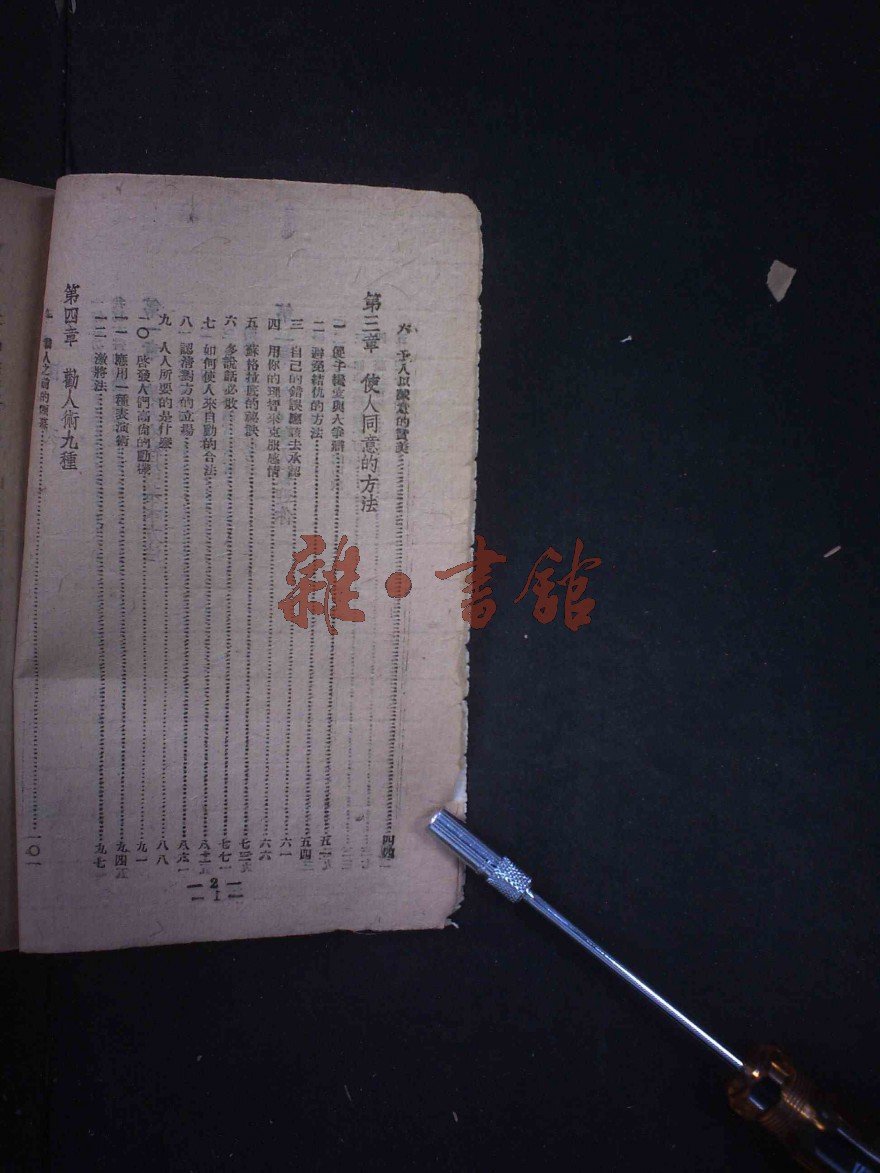 六 予人以誠意的贊美 四四
第三章 使人同意的方法
一 傻子纔立與人爭辯 五一
二 避免結仇的方法 五四
三 自己的錯誤應該去承認 六一
四 用你的理智來克服感情 六六
五 蘇格拉底的祕訣 七三
六 多說話必敗 七七
七 如何使人來自動的合法
八 認清對方的立場 八六
九 人人所要的是什麼 八八
一〇 啓發人們高尚的動機 九一
一一 應用一種表演術 九四
一二 激將法 九七
第四章 勸人術九種
一〇一
— 2 —
雜·書館